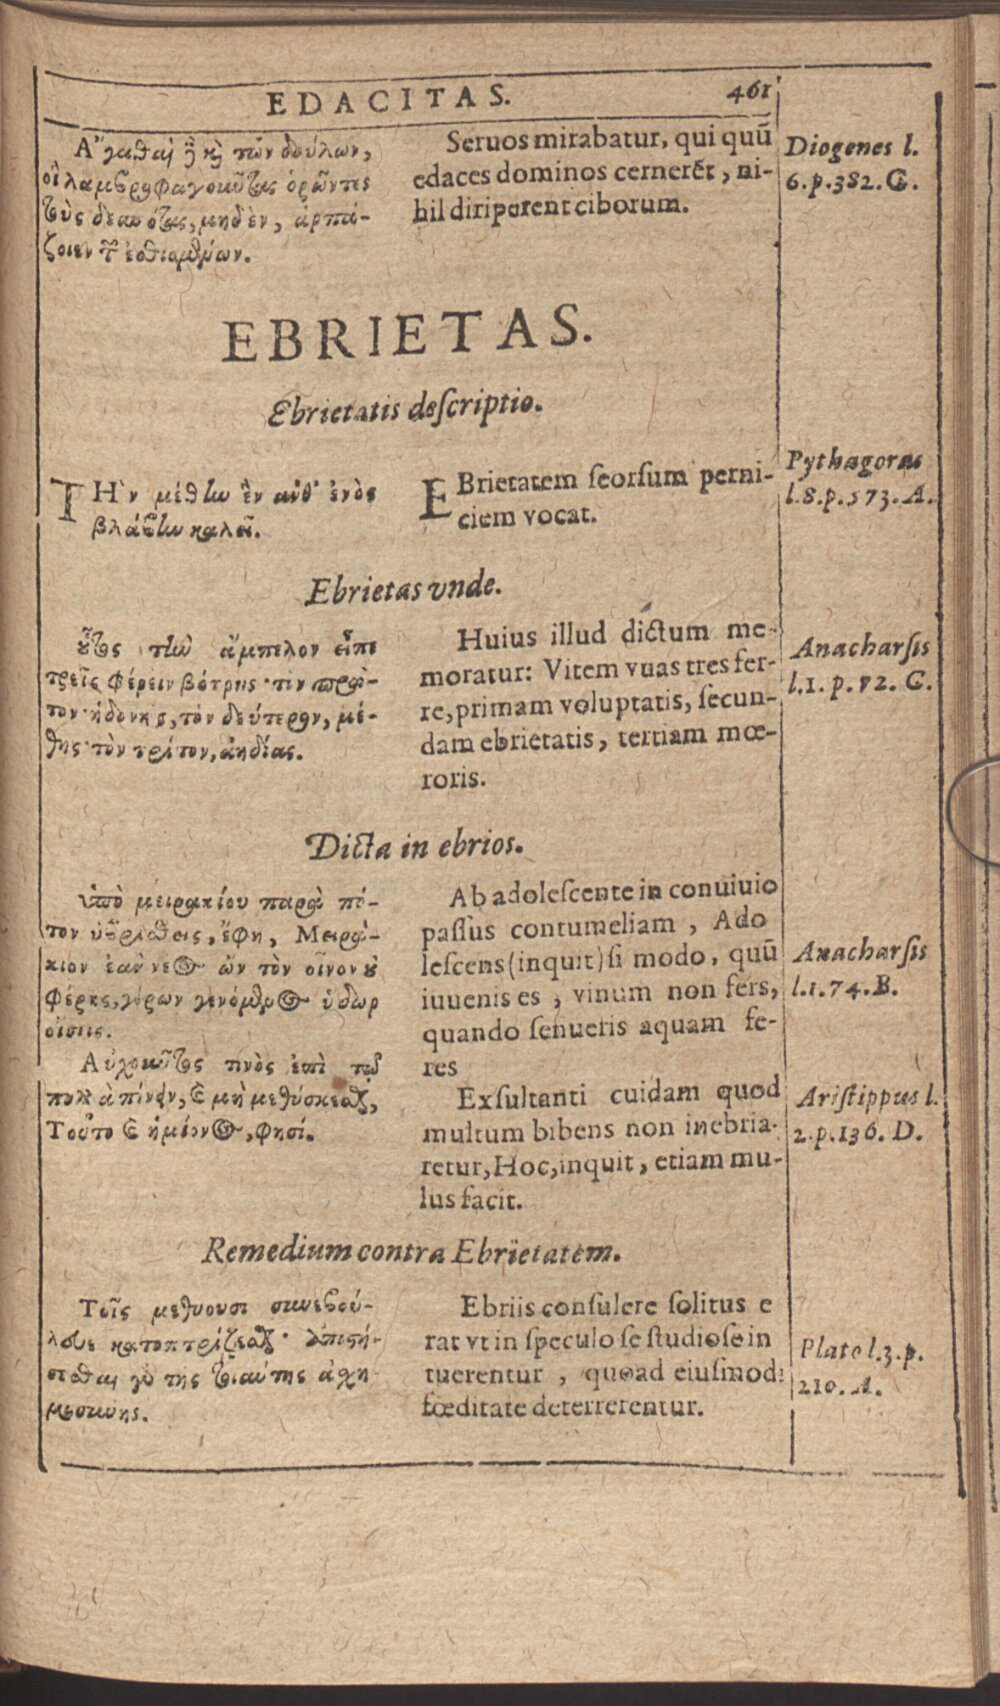 EDACITAS.
461
Ἄγασθαι ἢ καὶ τῶν δούλων,
οἳ λαιμαργοφαγοῦντας ὁρῶντες
τοὺς δεσπότας, μηδὲν, ἁρπά-
ζοιεν τῶν ἐσθιομένων.
Seruos mirabatur, qui quū
edaces dominos cernerēt, ni-
hil diriperent ciborum.
Diogenes l.
6.p.382.G.
EBRIETAS.
Ebrietatis descriptio.
ΤΗν μέθην ἓν ἀνθ' ἑνὸς
βλάβην καλεῖ.
EBrietatem seorsum perni-
ciem vocat.
Pythagoras
l.8.p.573.A.
Ebrietas vnde.
οὗτος τὴν ἄμπελον εἶπε
τρεῖς φέρειν βότρυς· τὸν πρῶ-
τον· ἡδονῆς, τὸν δεύτερον, μέ-
θης· τὸν τρίτον, ἀηδίας.
Huius illud dictum me-
moratur: Vitem vuas tres fer-
re, primam voluptatis, secun-
dam ebrietatis, tertiam mœ-
roris.
Anacharsis
l.1. p. 72. C.
Dicta in ebrios.
ὑπὸ μειρακίου παρὰ πό-
τον ὑβρισθεὶς, ἔφη, Μειρά-
κιον ἐὰν νέος ὢν τὸν οἶνον οὐ
φέρης, γέρων γενόμενος ὕδωρ
οἴσεις.
Ab adolescente in conuiuio
passus contumeliam, Ado
lescens (inquit) si modo, quū
iuuenis es, vinum non fers,
quando senueris aquam fe-
res
Anacharsis
l.1.74.B.
Αὐχοῦντος τινὸς ἐπὶ τῷ
πολλὰ πίνειν, καὶ μὴ μεθύσκεσθαι,
Τοῦτο καὶ ἡμίονος, φησί.
Exsultanti cuidam quod
multum bibens non inebria-
retur, Hoc, inquit, etiam mu-
lus facit.
Aristippus l.
2.p.136. D.
Remedium contra Ebrietatem.
Τοῖς μεθύουσι συνεβού-
λευε κατοπτρίζεσθαι· ἀποστή-
σεσθαι γὰρ τῆς τοιαύτης ἀσχη-
μοσύνης.
Ebriis consulere solitus e
rat vt in speculo se studiose in
tuerentur, quoad eiusmodi
fœditate deterrerentur.
Plato l.3.p.
210. A.